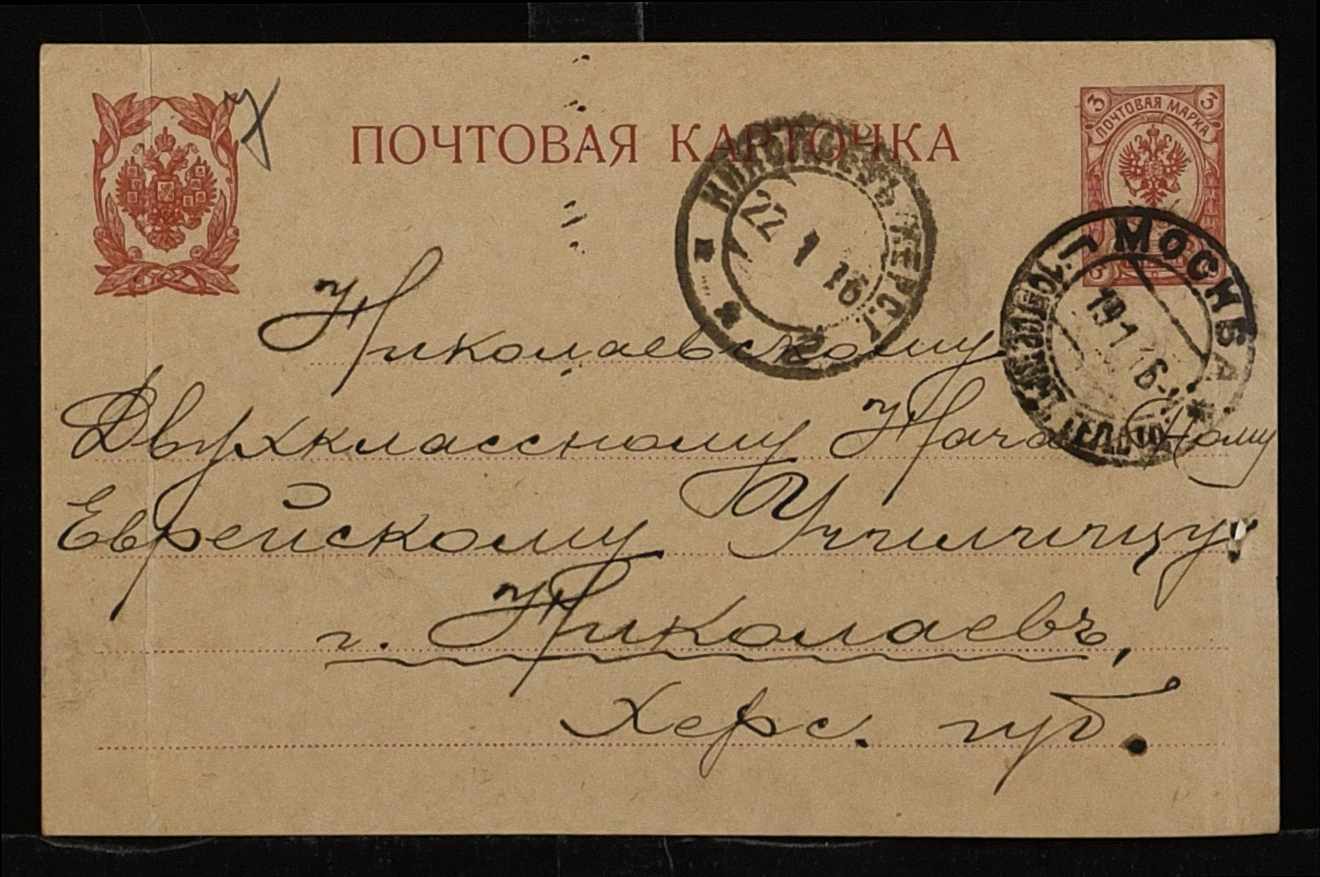 ПОЧТОВАЯ КАРТОЧКА
3 3
ПОЧТОВАЯ МАРКА
НИКОЛАЕВЪ ХЕРС.Г.
22 1 16
МОСКВА
19 1 16
Николаевскому
Двухклассному
Еврейскому Училищу
г. Николаевъ,
Херс. губ.